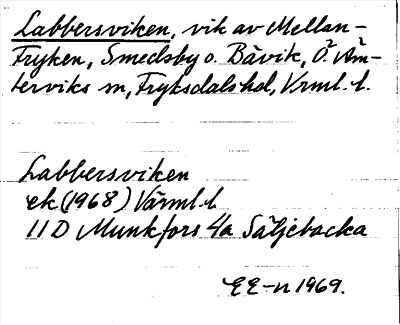 Labbersviken, vik av Mellan-
Fryken, Smedsby o. Båvik, Ö. Äm-
terviks sn, Fryksdals hd, Vrml. l.
Labbersviken
ek (1968) Värml. l
11 D Munkfors 4a Säljebacka
EE-n 1969.